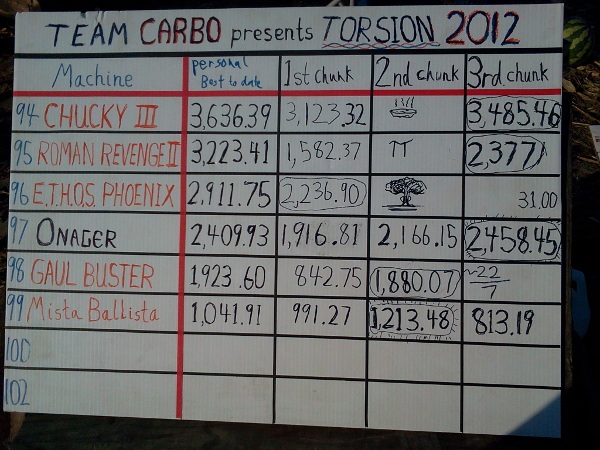 TEAM CARBO presents TORSION 2012
Machine personal Best to date 1st chunk 2nd chunk 3rd chunk
94 CHUCKY III 3,636.39 3,123.32 3,485.46
95 ROMAN REVENGE II 3,223.41 1,582.37 π 2,377
96 E.T.H.O.S. PHOENIX 2,911.75 2,236.90 31.00
97 ONAGER 2,409.93 1,916.81 2,166.15 2,458.45
98 GAUL BUSTER 1,923.60 842.75 1,880.07 ~22/7
99 Mista Ballista 1,041.91 991.27 1,213.48 813.19
100
102